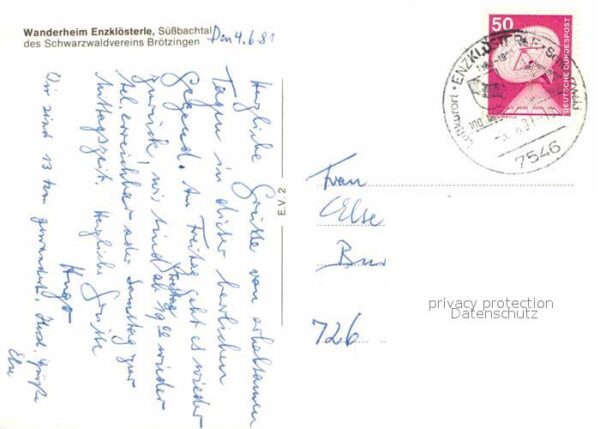 Wanderheim Enzklösterle, Süßbachtal
des Schwarzwaldvereins Brötzingen
Den 4.6.81
Herzliche Grüße von erholsamen
Tagen in dieser herrlichen
Gegend. Am Freitag geht es wieder
zurück, wir sind
Freitag ab 19 00 wieder
tel. erreichbar oder Samstag zur
Mittagszeit. Herzliche Grüße
Hugo
Wir sind 13 km gewandert. Herzl. Grüße
Else
EV 2
50
DEUTSCHE BUNDESPOST
Luftkurort · ENZKLÖSTERLE
7546
Frau
Else
726
privacy protection
Datenschutz